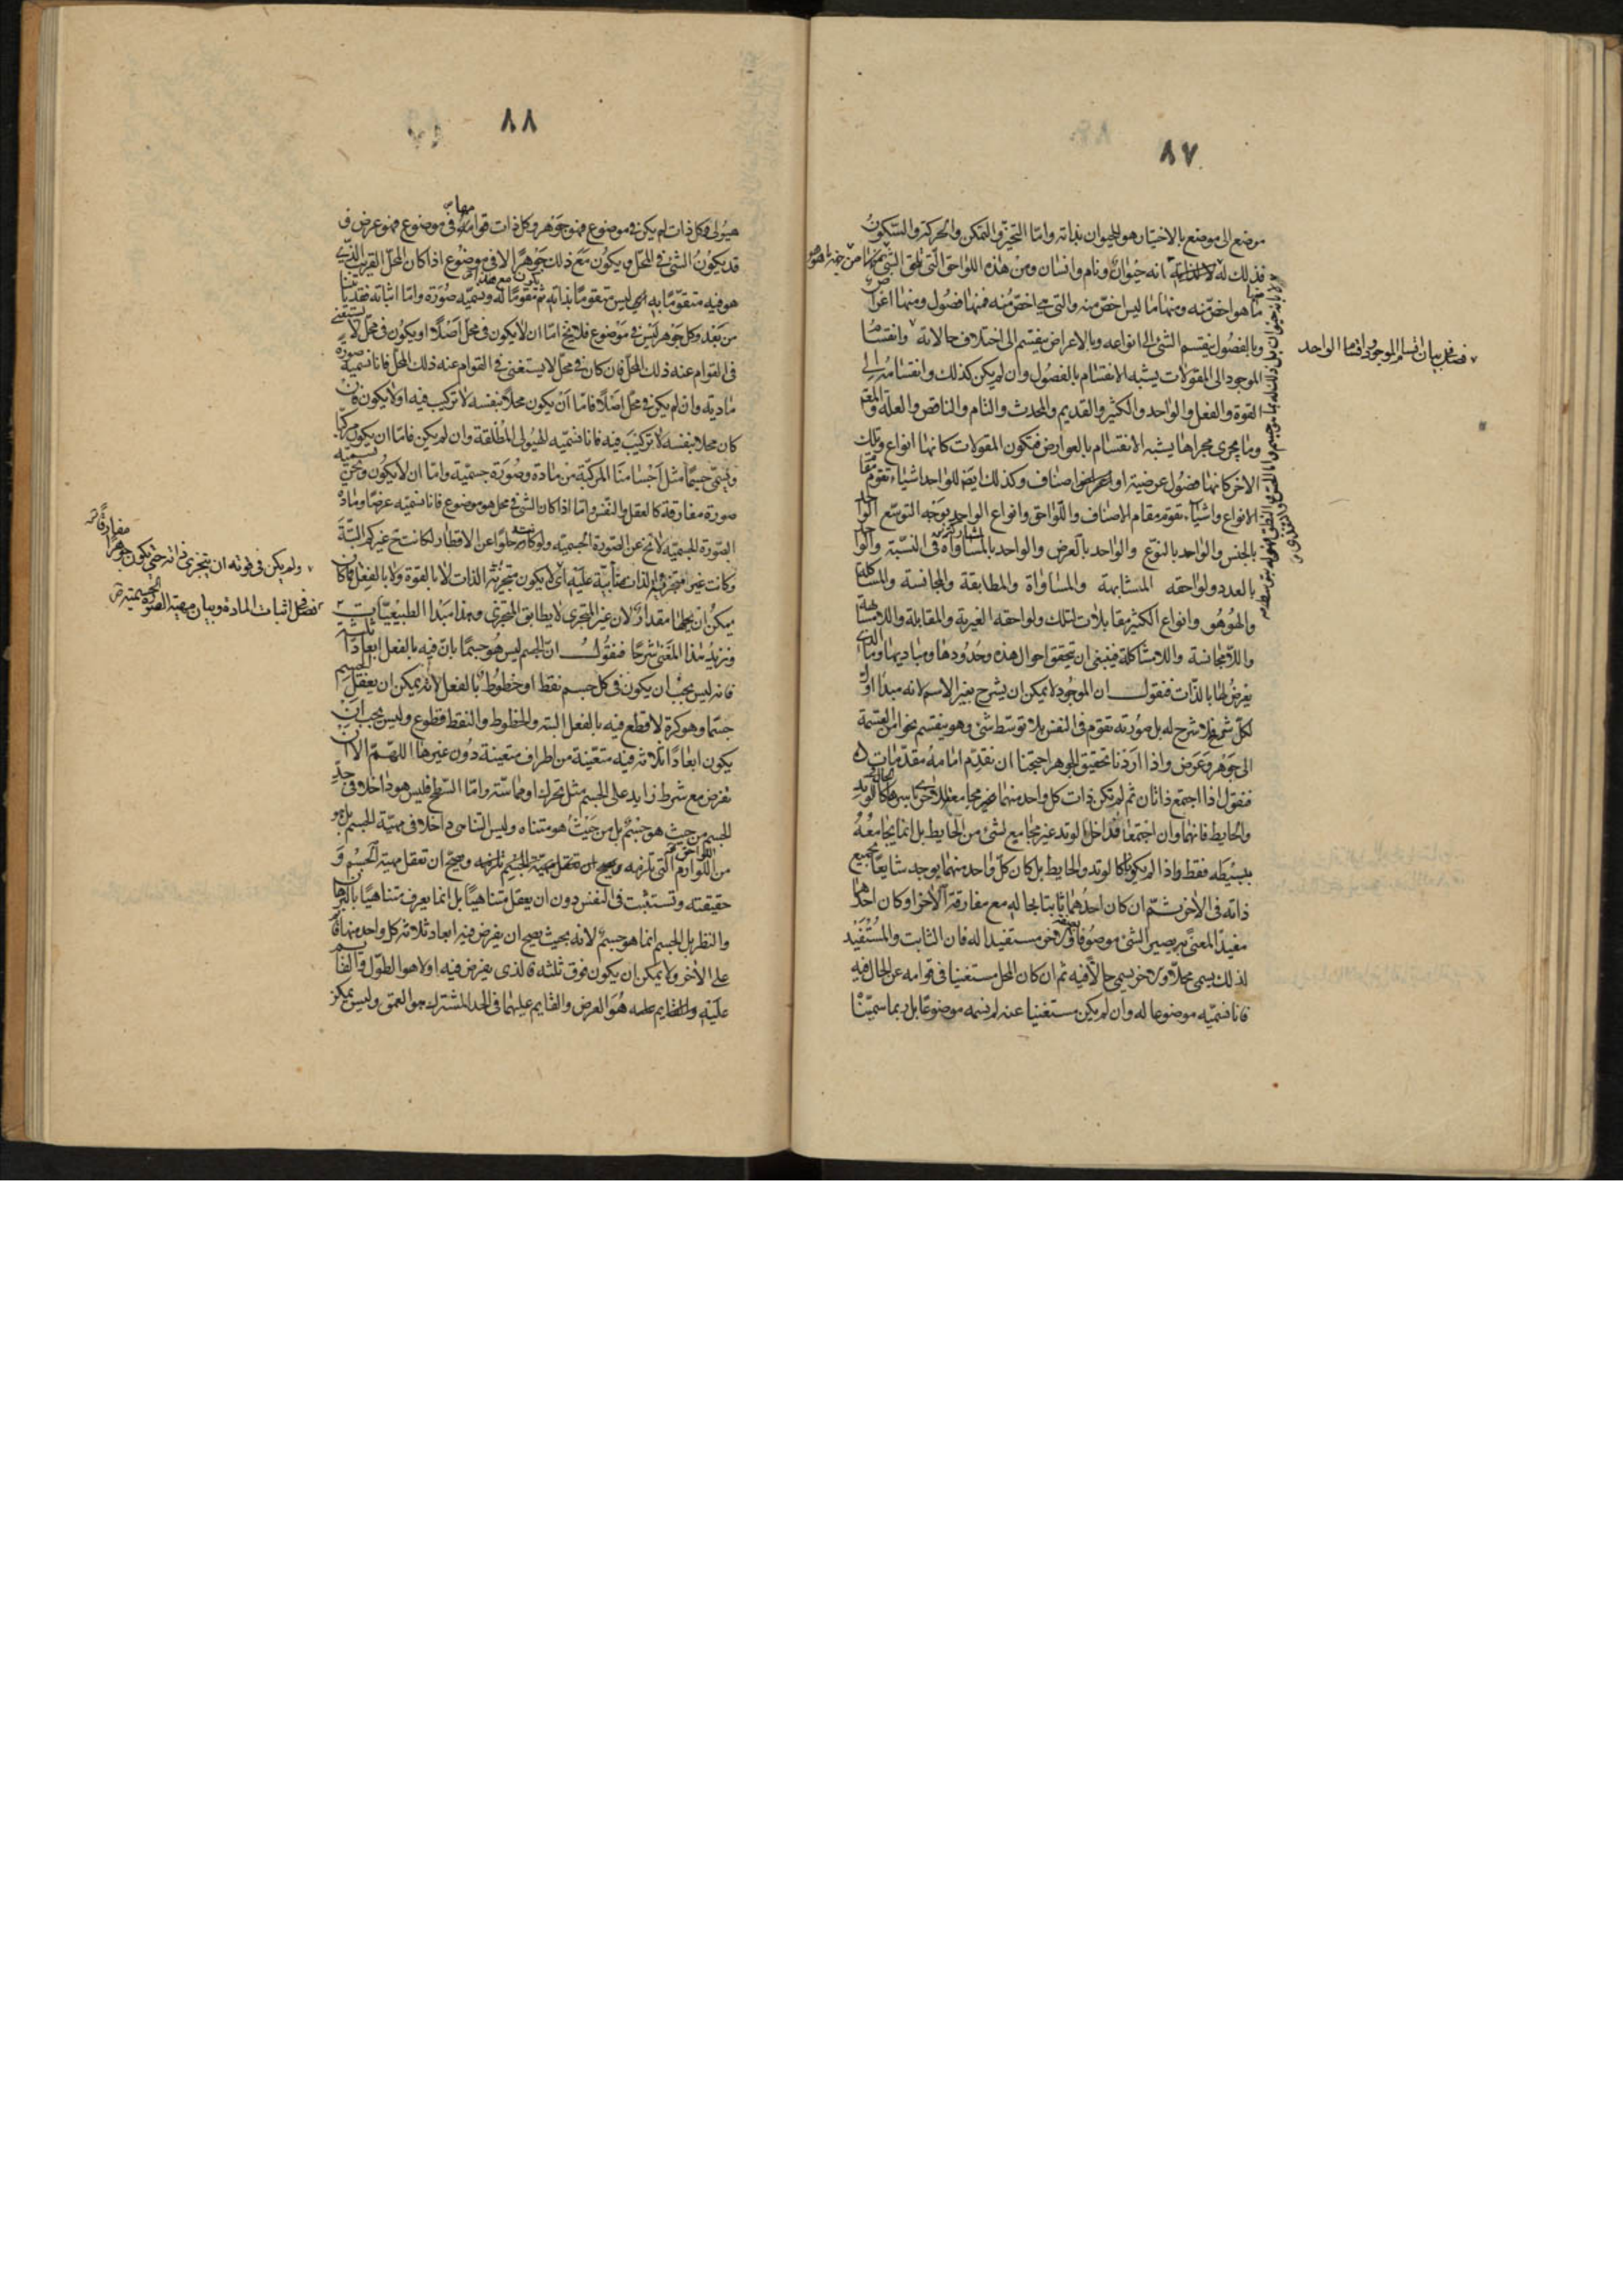 ٨٧
موضع الى موضع بالاختيار هو للحيوان بذاته واما التحيز والتمكن والحركة والسكون
فذلك له لا لذاته انه حيوان ونام وانسان ومن هذه اللواحق التى تلحق الشئ
ما هو اخص منه ومنها ما ليس اخص منه والتى هى اخص منه فمنها فصول ومنها اعراض
وبالفصول ينقسم الشئ الى انواعه وبالاعراض ينقسم الى اختلاف حالاته وانقسام
الموجود الى المقولات يشبه الانقسام بالفصول وان لم يكن كذلك وانقسامه الى
القوة والفعل والواحد والكثير والقديم والمحدث والتام والناقص والعلة والمعلول
وما يجرى مجراها يشبه الانقسام بالعوارض فتكون المقولات كانها انواع وتلك
الاخر كانها فصول عرضية او اصناف وكذلك ايضا للواحد اشياء تقوم مقام
الانواع واشياء تقوم مقام الاصناف واللواحق وانواع الواحد بوجه التوسع الواحد
بالجنس والواحد بالنوع والواحد بالعرض والواحد بالمساواة فى النسبة والواحد
بالعدد ولواحقه المشابهة والمساواة والمطابقة والمجانسة والمشاكلة
والهوهو وانواع الكثير مقابلات لتلك ولواحقه الغيرية والمقابلة واللامشابهة
واللامجانسة واللامشاكلة فينبغى ان تحقق احوال هذه وحدودها ومباديها وما الذى
يعرض لها بالذات فنقول ان الموجود لا يمكن ان يشرح بغير الاسم لانه مبدأ اول
لكل شرح فلا شرح له بل صورته تقوم فى النفس بلا توسط شئ وهو ينقسم نحوا من القسمة
الى جوهر وعرض واذا اردنا تحقيق الجوهر احتجنا ان نقدم امامه مقدمات
فنقول اذا اجتمع ذاتان ثم لم تكن ذات كل واحد منهما مجامعة للاخرى باسرها كالحال فى الوتد
والحايط فانهما وان اجتمعا فداخل الوتد غير مجامع لشئ من الحايط بل انما يجامعه
ببسيطه فقط واذا لم يكونا كالوتد والحايط بل كان كل واحد منهما يوجد شايعا بجميع
ذاته فى الاخر ثم ان كان احدهما ثابتا بحاله مع مفارقة الاخر او كان احدهما
مفيدا لمعنى به يصير الشئ موصوفا بصفة والاخر مستفيدا له فان الثابت والمستفيد
لذلك يسمى محلا والاخر يسمى حالا فيه ثم ان كان المحل مستغنيا فى قوامه عن الحال فيه
فانا نسميه موضوعا له وان لم يكن مستغنيا عنه لم نسمه موضوعا بل ربما سميناه
فصل فى بيان اقسام الموجود واقسام الواحد
٨٨
هيولى فكل ذات لم يكن فى موضوع فهو جوهر وكل ذات قوامها فى موضوع فهو عرض و
قد يكون الشئ فى المحل ويكون مع ذلك جوهرا لا فى موضوع اذا كان المحل القريب الذى
هو فيه متقوما به ليس متقوما بذاته ثم مقوما له ونسميه صورة واما اثباته فقد يأتينا
من بعد وكل جوهر ليس فى موضوع فلا يخ اما ان لا يكون فى محل اصلا او يكون فى محل لا يستغنى
فى القوام عنه ذلك المحل فان كان فى محل لا يستغنى فى القوام عنه ذلك المحل فانا نسميه صورة
مادية وان لم يكن فى محل اصلا فاما ان يكون محلا بنفسه لا تركيب فيه او لا يكون فان
كان محلا بنفسه لا تركيب فيه فانا نسميه الهيولى المطلقة وان لم يكن فاما ان يكون مركبا
مثل اجسامنا المركبة من مادة وصورة جسمية واما ان لا يكون ونحن نسميه
صورة مفارقة كالعقل والنفس واما اذا كان الشئ فى محل هو موضوع فانا نسميه عرضا ومادة
الصورة الجسمية لا تخ عن الصورة الجسمية ولو كانت خلوا عن الاقطار لكانت ح غير كم البتة
وكانت غير متجزية الذات متأبية عليه اى لا يكون متجزية الذات لا بالقوة ولا بالفعل فما كان
يمكن ان يحلها مقدار لان غير المتجزى لا يطابق المتجزى وهذا مبدأ الطبيعيات
ونزيد هذا المعنى شرحا فنقول ان الجسم ليس هو جسما بان فيه بالفعل ابعادا ثلثة
فانه ليس يجب ان يكون فى كل جسم نقط او خطوط بالفعل لانه يمكن ان يعقل الجسم
جسما وهو كرة لا قطع فيه بالفعل البتة والخطوط والنقط قطوع وليس يجب ان
يكون ابعادا ثلاثة فيه متعينة من اطراف متعينة دون غيرها اللهم الا ان
تفرض مع شرط زايد على الجسم مثل تحرك او مماسة واما السطح فليس هو داخلا فى حد
الجسم من حيث هو جسم بل من حيث هو متناه وليس التناهى داخلا فى مهية الجسم بل هو
من اللوازم التى تلزمه وصح ان تعقل مهية الجسم و
حقيقته وتستثبت فى النفس دون ان يعقل متناهيا بل انما يعرف متناهيا بالبرهان
والنظر بل الجسم انما هو جسم لانه بحيث يصح ان يفرض فيه ابعاد ثلاثة كل واحد منها قائم
على الاخر ولا يمكن ان يكون فوق ثلثه فالذى يفرض فيه اولا هو الطول والقائم
عليه هو العرض والقايم عليهما فى الحد المشترك هو العمق وليس يمكن
ولم يكن فى قوته ان يتجزى ذاته حتى يكون جوهرا مفارقا
فصل فى اثبات المادة وبيان مهية الصورة الجسمية